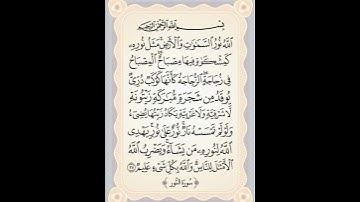 بِسْمِ اللَّهِ الرَّحْمَٰنِ الرَّحِيمِ
اللَّهُ نُورُ السَّمَٰوَٰتِ وَالْأَرْضِ مَثَلُ نُورِهِ
كَمِشْكَوٰةٍ فِيهَا مِصْبَاحٌ الْمِصْبَاحُ
فِي زُجَاجَةٍ الزُّجَاجَةُ كَأَنَّهَا كَوْكَبٌ دُرِّيٌّ
يُوقَدُ مِن شَجَرَةٍ مُّبَٰرَكَةٍ زَيْتُونَةٍ
لَّا شَرْقِيَّةٍ وَلَا غَرْبِيَّةٍ يَكَادُ زَيْتُهَا يُضِيءُ
وَلَوْ لَمْ تَمْسَسْهُ نَارٌ نُّورٌ عَلَىٰ نُورٍ يَهْدِي
اللَّهُ لِنُورِهِ مَن يَشَاءُ وَيَضْرِبُ اللَّهُ
الْأَمْثَٰلَ لِلنَّاسِ وَاللَّهُ بِكُلِّ شَيْءٍ عَلِيمٌ ٣٥
سُورَةُ النُّور